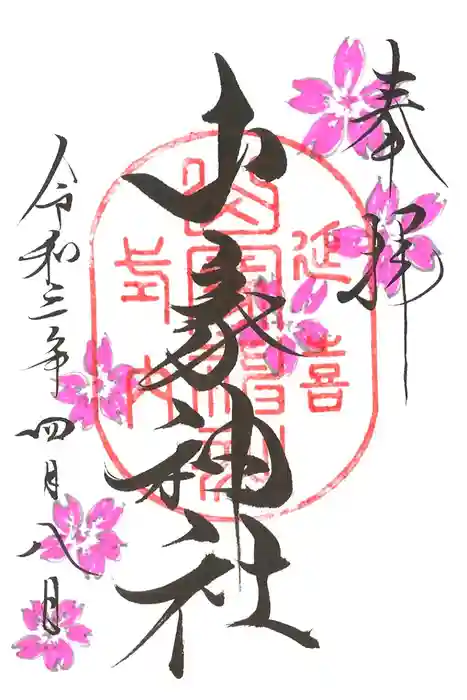 奉拝
延喜
式内
山家神社
令和三年四月八日